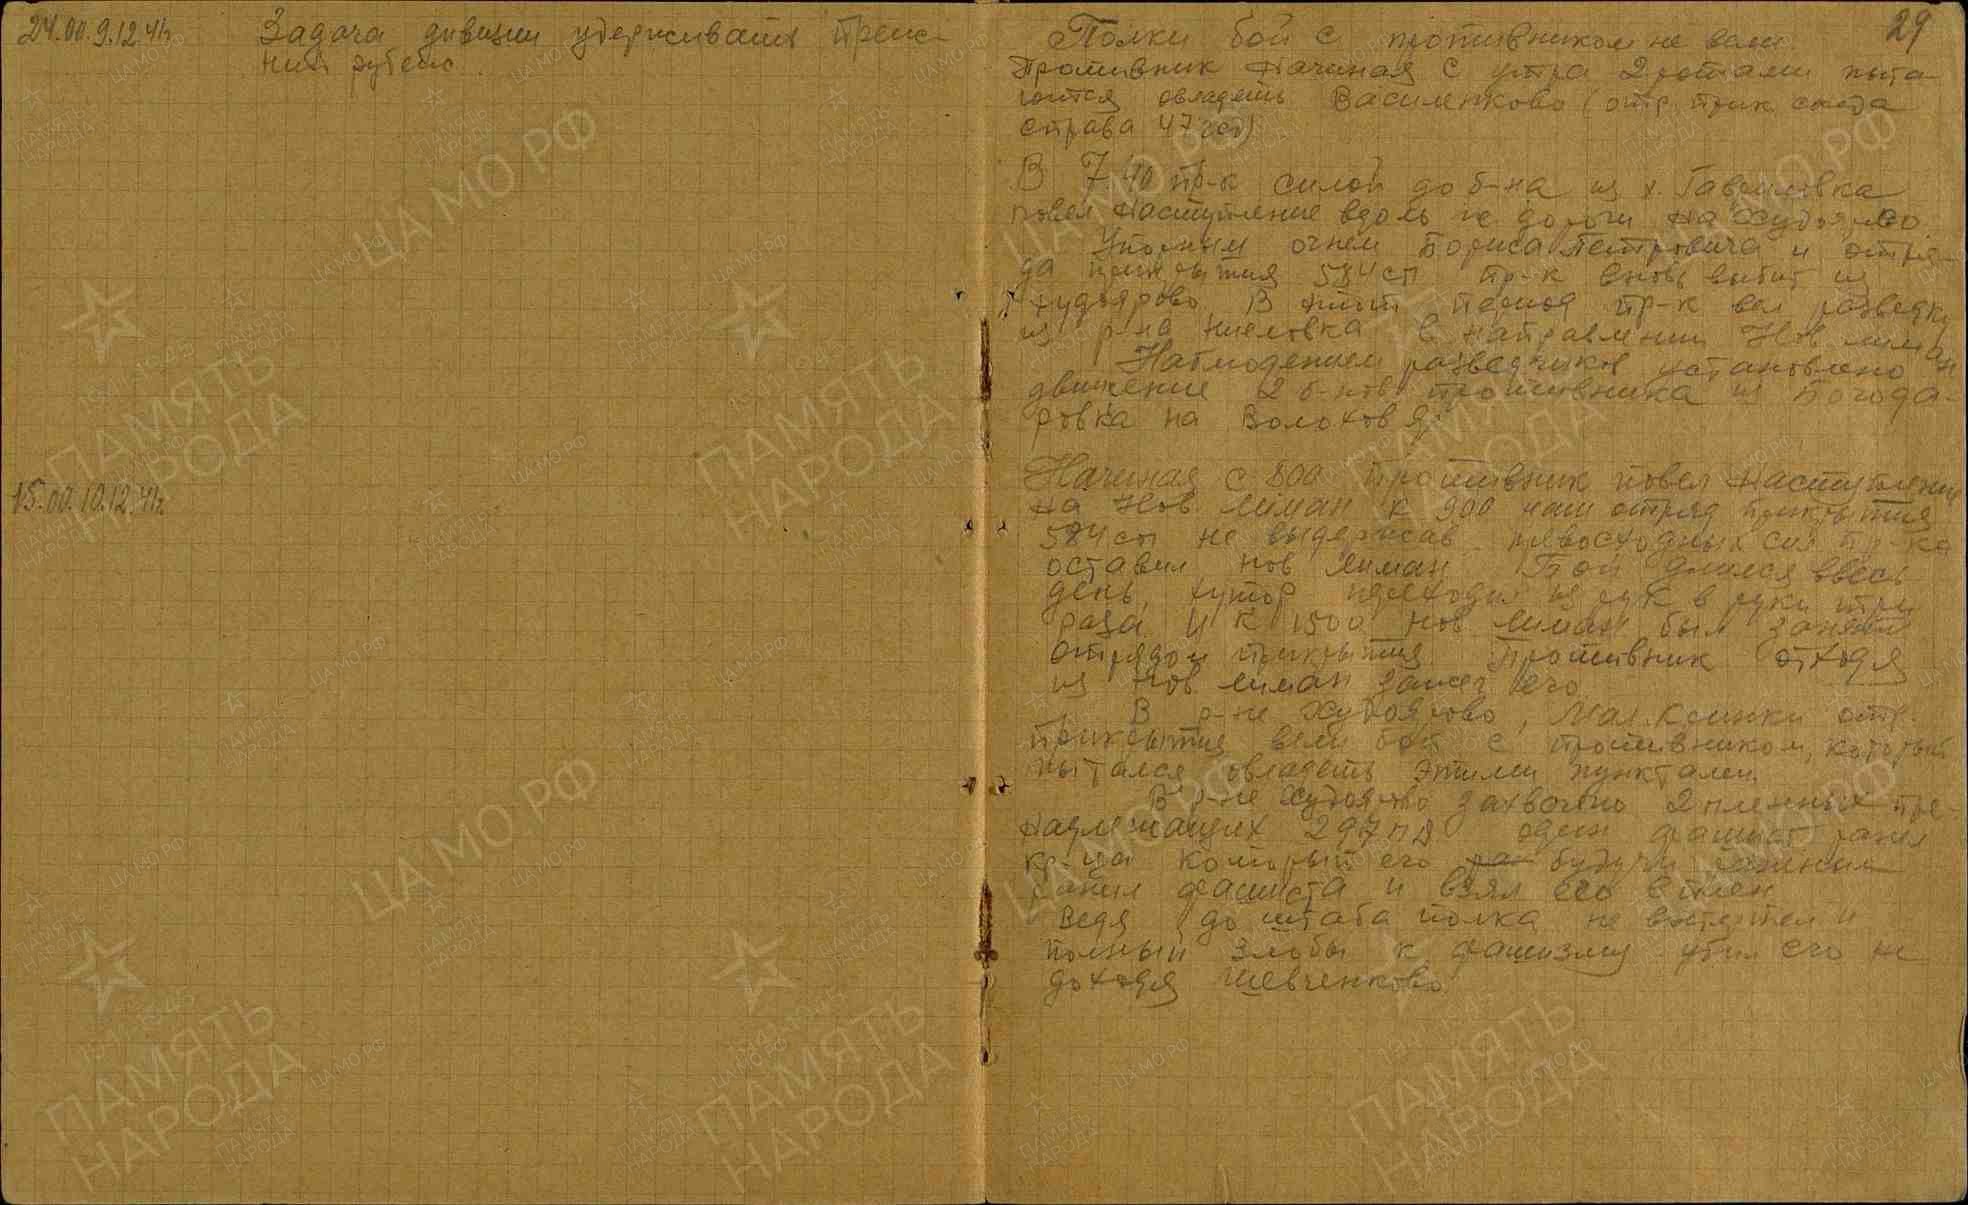 24.00.9.12.41г
Задача дивизии удерживать преж-
ний рубеж.
15.00.10.12.41г.
29
Полки бой с противником не вели.
Противник начиная с утра 2 ротами пыта-
ются овладеть Василенково (отр. прик. соседа
справа 47 гсд)
В 7.40 пр-к силой до б-на из х. Гавриловка
повел наступление вдоль ж дороги на Худоярово.
Упорным огнем Бориса Петровича и отря-
да прикрытия 584 сп пр-к вновь выбит из
Худоярово. В этот период пр-к вел разведку
из р-на в направлении Нов лиман
Наблюдением разведчиков установлено
движение 2 б-нов противника из Богода-
ровка на Волохов Яр
Начиная с 800 противник повел наступление
на Нов лиман к 900 наш отряд прикрытия
584 сп не выдержав превосходных сил пр-ка
оставил нов лиман. Бой длился ввесь
день, хутор переходил из рук в руки три
раза и к 1500 нов лиман был занят
отрядом прикрытия. Противник отходя
из Нов лиман зажег его
В р-не Худоярово, Мал. Кринки отр.
прикрытия вели бой с противником, который
пытался овладеть этими пунктами.
В р-не Худоярово захвачено 2 пленных при-
надлежащих 297 пд один фашист ранил
кр-ца который его ра будучи раненым
ранил фашиста и взял его в плен
Ведя до штаба полка не вытерпел и
полный злобы к фашизму убил его не
доходя Шевченково